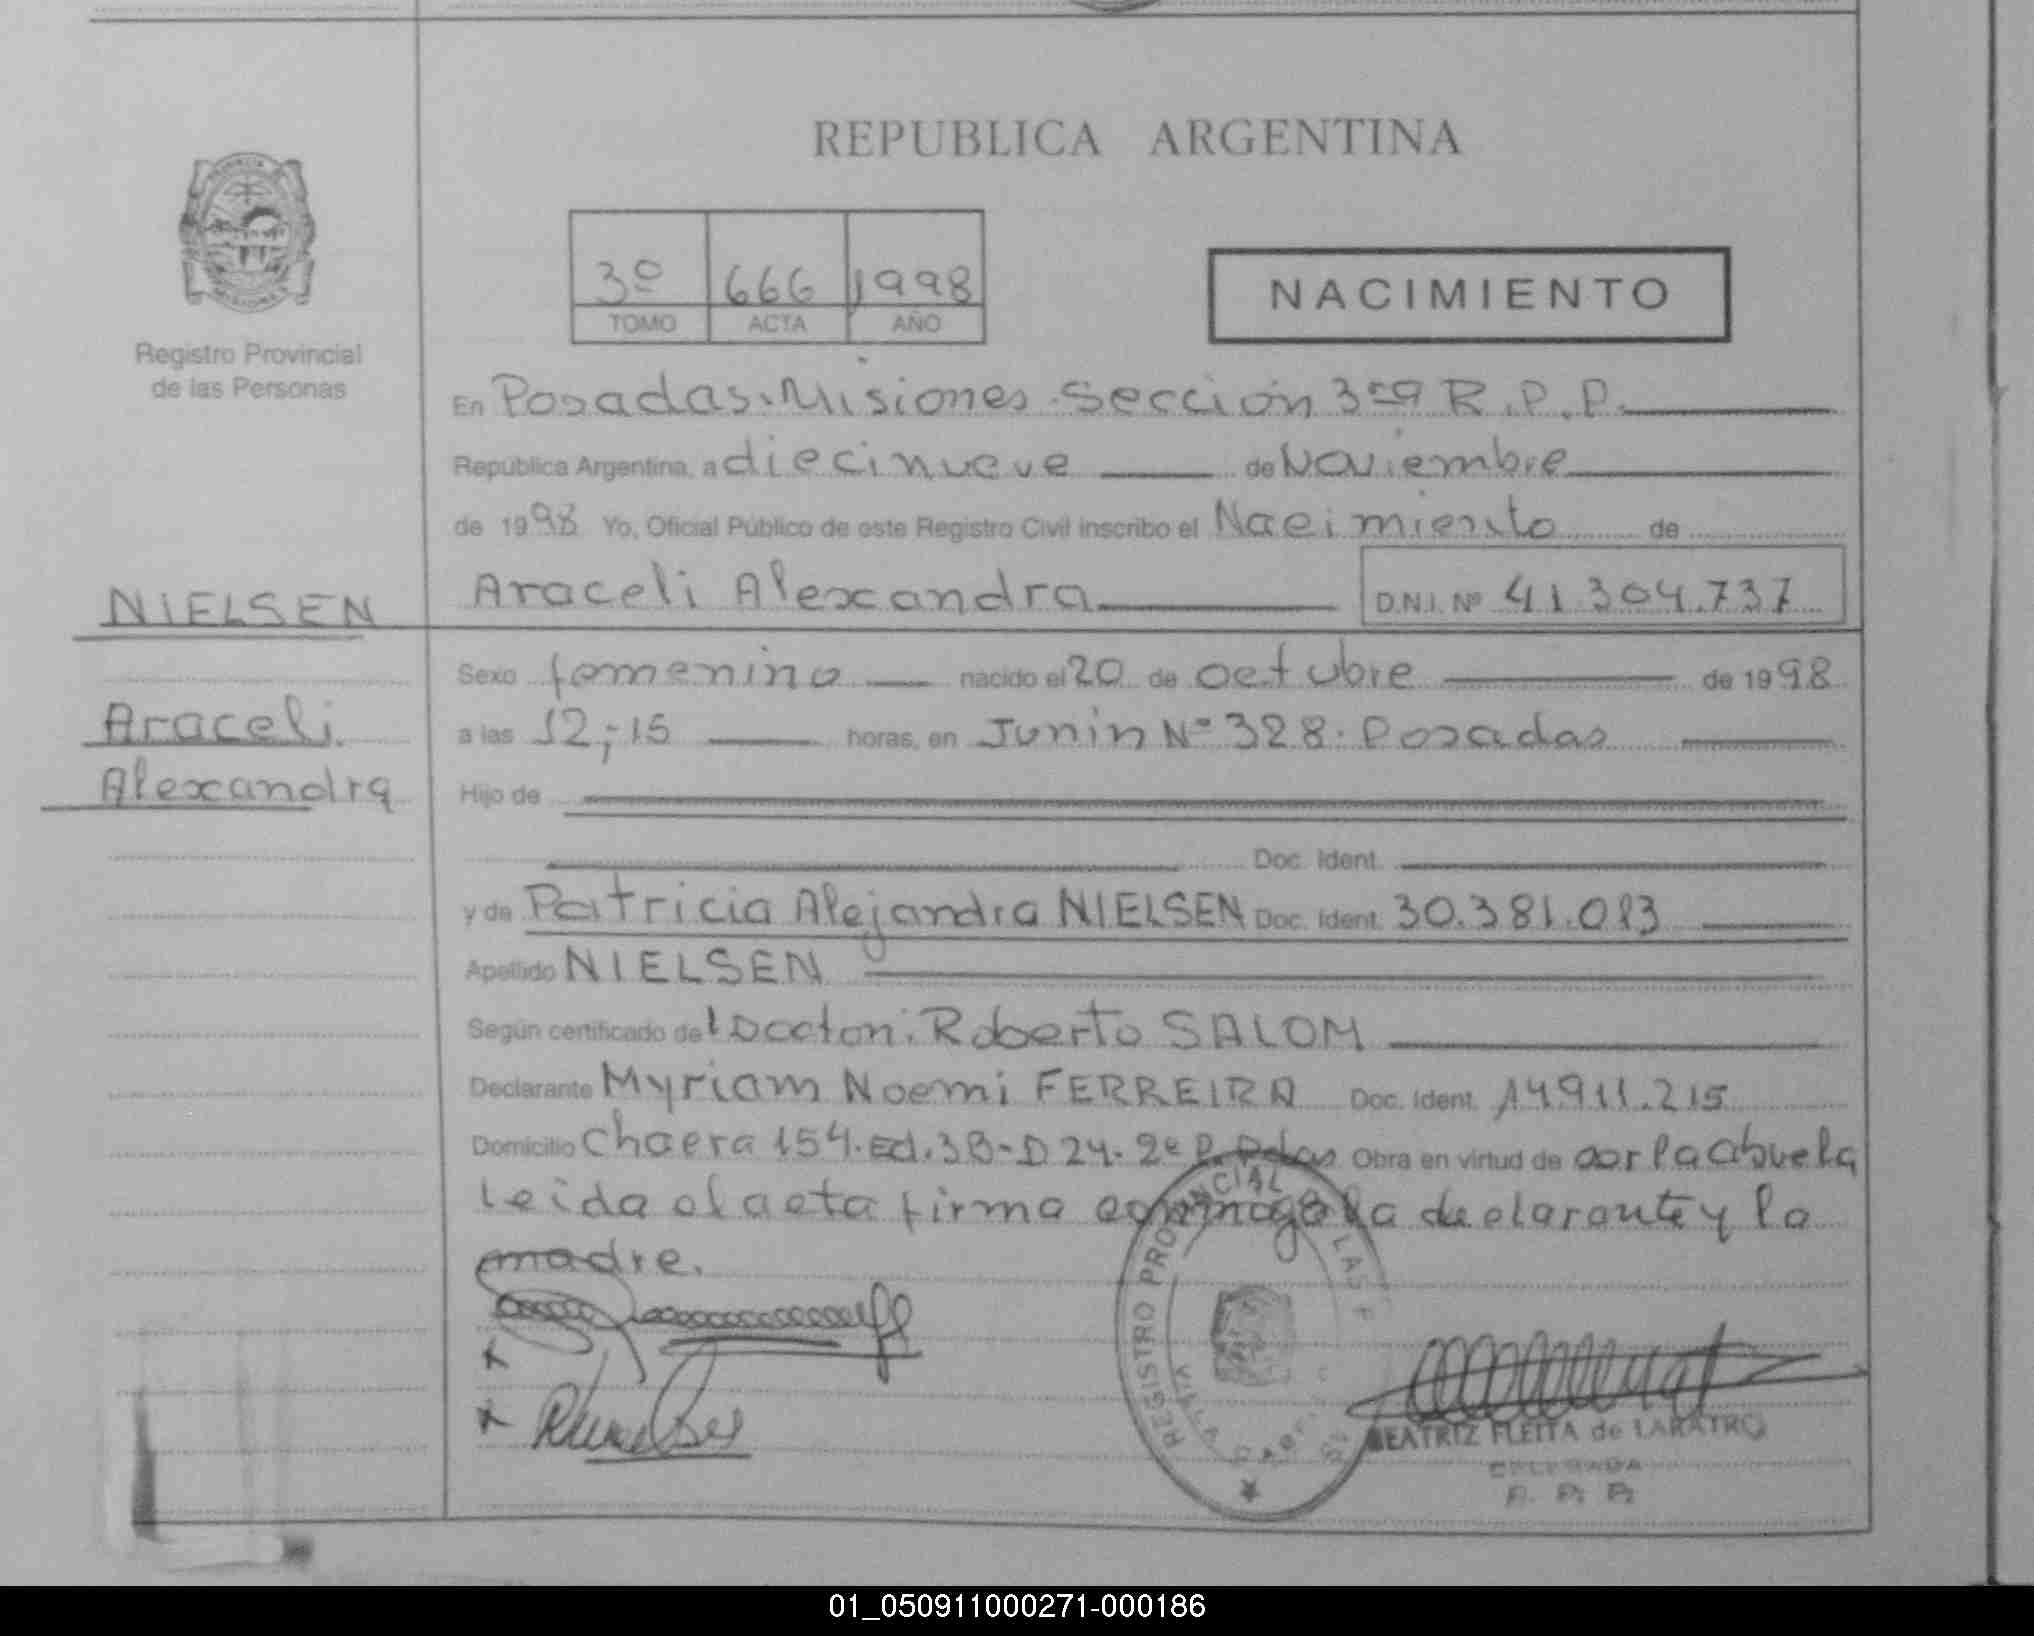 REPUBLICA ARGENTINA
3º 666 1998
TOMO ACTA AÑO
NACIMIENTO
Registro Provincial
de las Personas
En Posadas. Misiones. Sección 3ra R.P.P.
República Argentina, a diecinueve de Noviembre
de 1998 Yo, Oficial Público de este Registro Civil inscribo el Nacimiento de
NIELSEN
Araceli Alexandra D.N.I. Nº 41.304.737
Sexo femenino nacido el 20 de octubre de 1998
Araceli
a las 12,-15 horas, en Junin Nº 328. Posadas
Alexandra
Hijo de
Doc. Ident.
y de Patricia Alejandra NIELSEN Doc. Ident. 30.381.013
Apellido NIELSEN
Según certificado de Roberto SALOM
Declarante Myriam Noemi FERREIRA Doc. Ident. 14.911.215
Domicilio 154. Ed. 3B-D 24. Obra en virtud de la abuela
Leida el acta firma conmigo la declarante y la
madre.
REGISTRO PROVINCIAL LAS
VILLA
BEATRIZ FLEITA de LARATRO
DELEGADA
R. P. P.
01_050911000271-000186